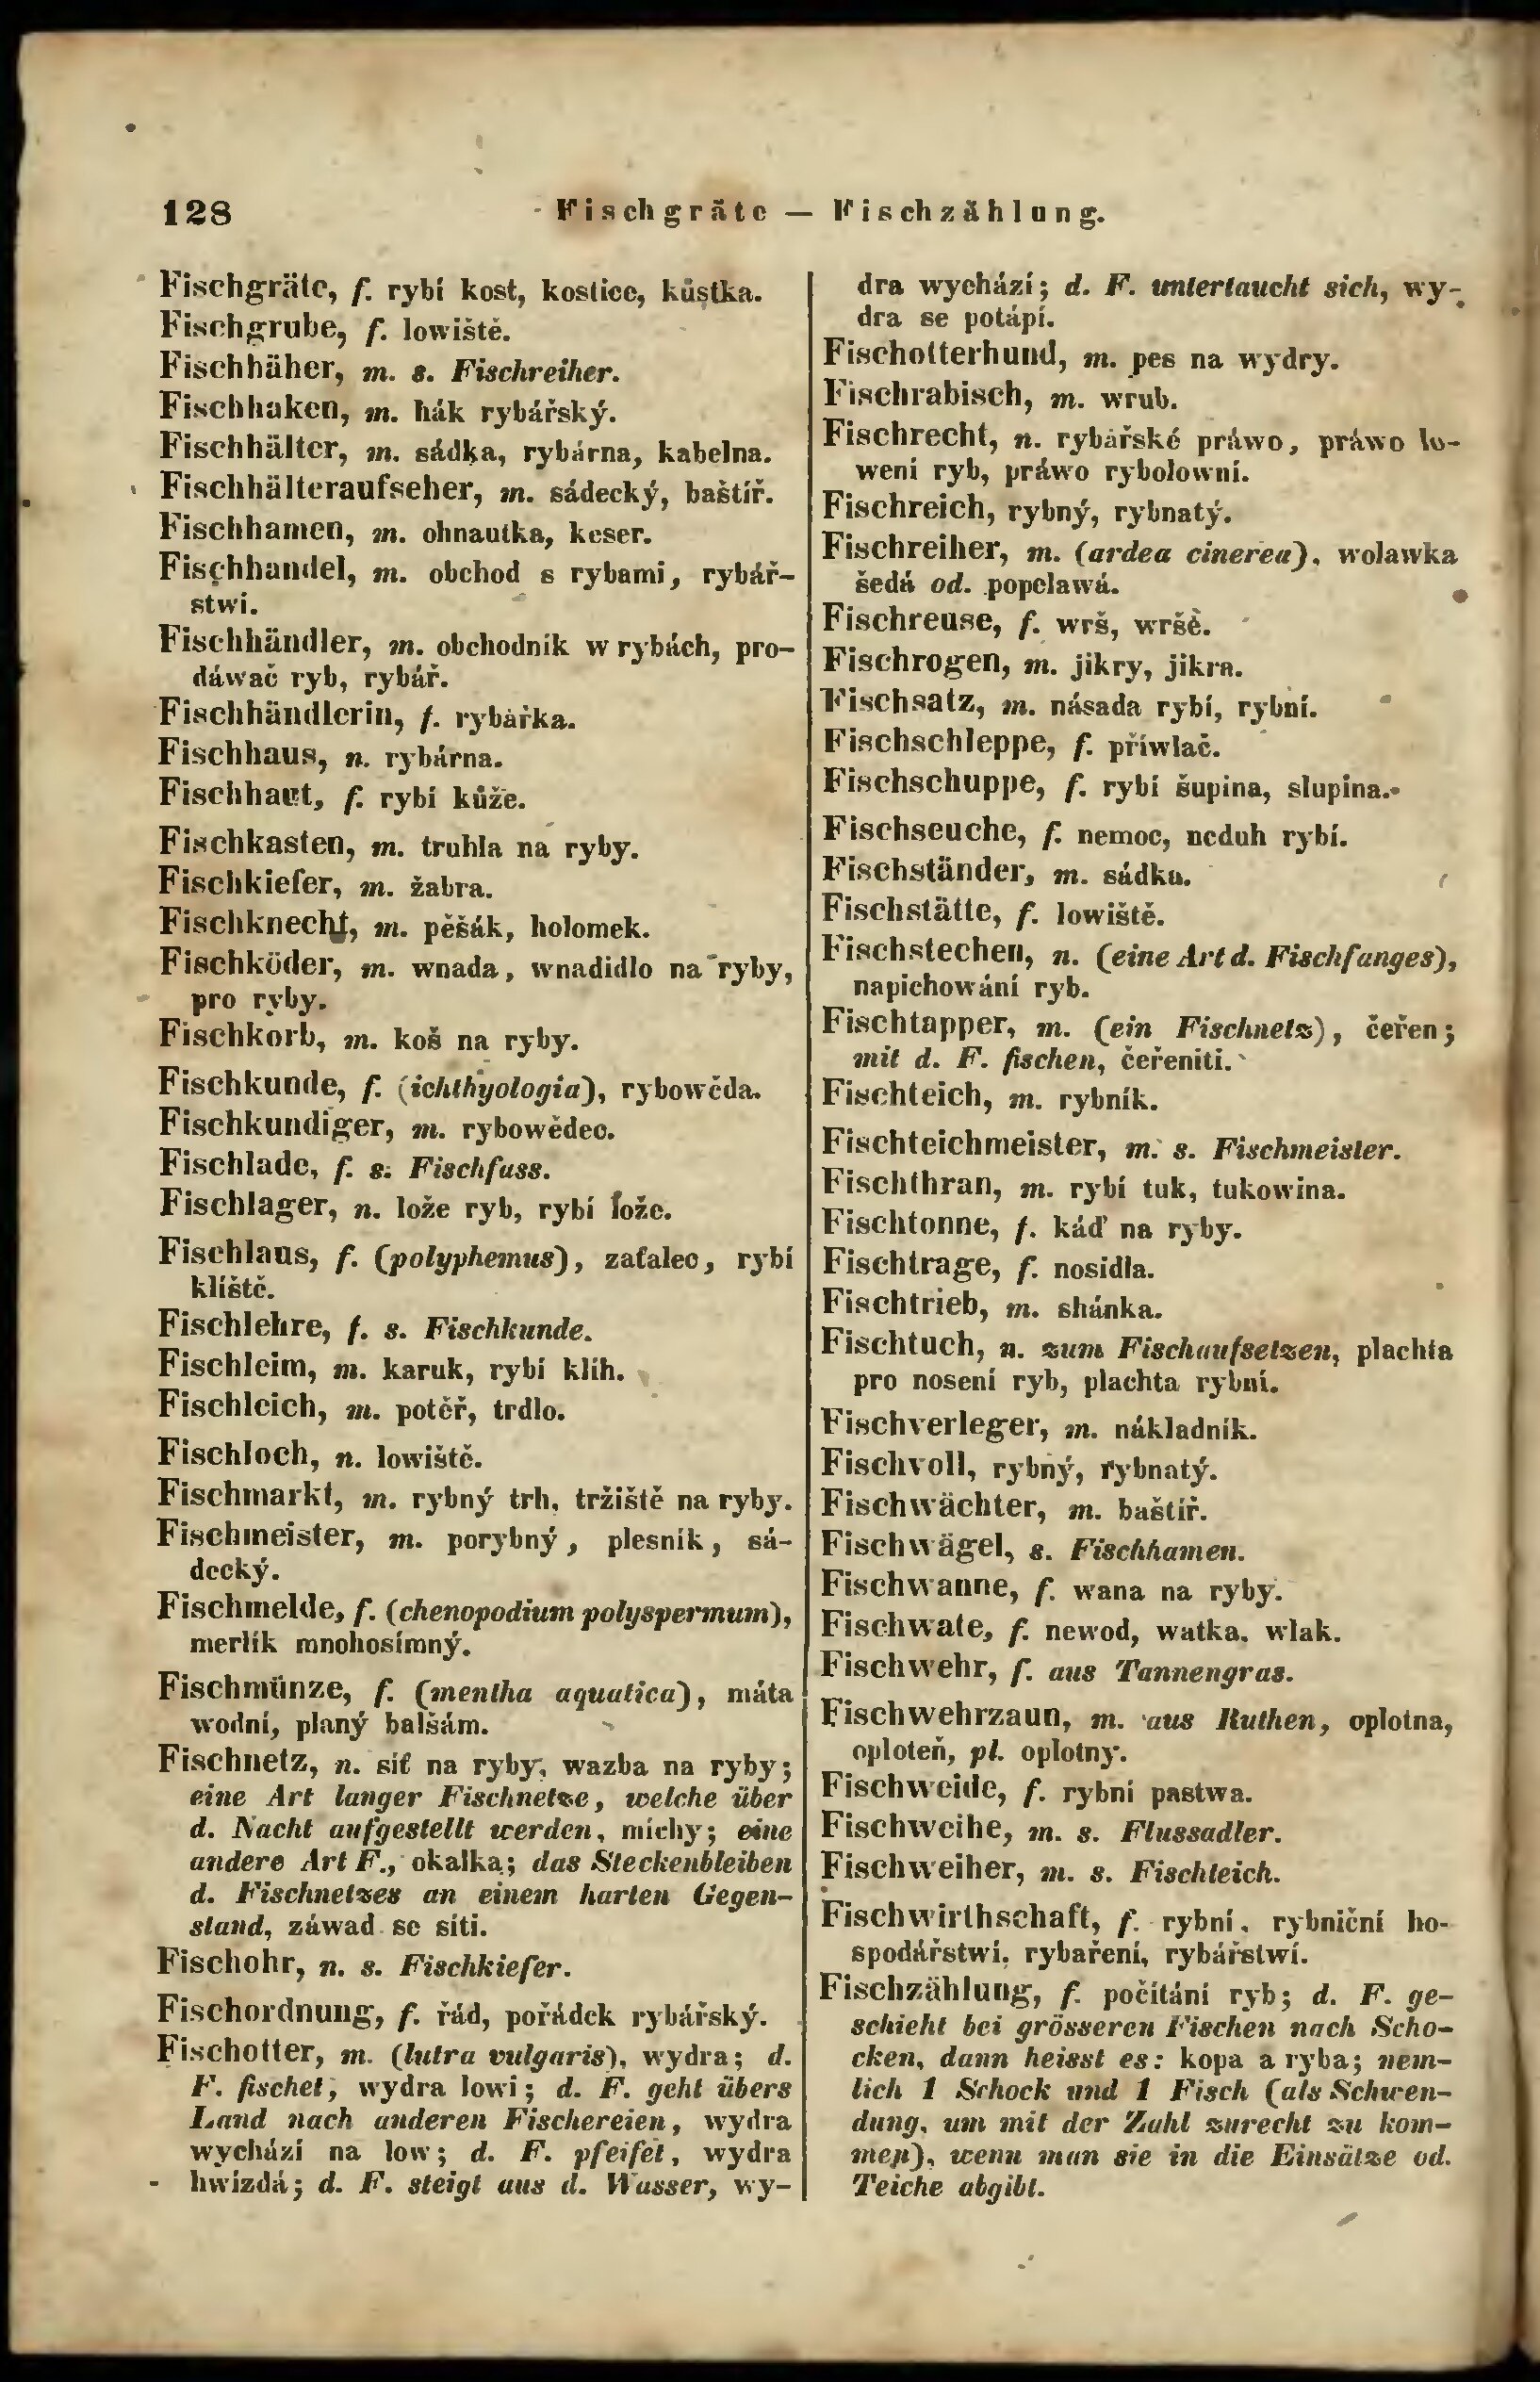 128 Fischgräte — Fischzählung.
Fischgräte, f. rybí kost, kostice, kůstka.
Fischgrube, f. lowiště.
Fischhäher, m. s. Fischreiher.
Fischhaken, m. hák rybářský.
Fischhälter, m. sádka, rybárna, kabelna.
Fischhälteraufseher, m. sádecký, baštíř.
Fischhamen, m. ohnautka, keser.
Fischhandel, m. obchod s rybami, rybář-
stwí.
Fischhändler, m. obchodník w rybách, pro-
dáwač ryb, rybář.
Fischhändlerin, f. rybářka.
Fischhaus, n. rybárna.
Fischhaut, f. rybí kůže.
Fischkasten, m. truhla na ryby.
Fischkiefer, m. žabra.
Fischknecht, m. pěšák, holomek.
Fischköder, m. wnada, wnadidlo na ryby,
pro ryby.
Fischkorb, m. koš na ryby.
Fischkunde, f. (ichthyologia), rybowěda.
Fischkundiger, m. rybowědec.
Fischlade, f. s. Fischfass.
Fischlager, n. lože ryb, rybí lože.
Fischlaus, f. (polyphemus), zaťalec, rybí
klíště.
Fischlehre, f. s. Fischkunde.
Fischleim, m. karuk, rybí klíh.
Fischleich, m. potěř, trdlo.
Fischloch, n. lowiště.
Fischmarkt, m. rybný trh, tržiště na ryby.
Fischmeister, m. porybný, plesník, sá-
decký.
Fischmelde, f. (chenopodium polyspermum),
merlík mnohosímný.
Fischmünze, f. (mentha aquatica), máta
wodní, planý balšám.
Fischnetz, n. síť na ryby, wazba na ryby;
eine Art langer Fischnetze, welche über
d. Nacht aufgestellt werden, míchy; eine
andere Art F., okalka; das Steckenbleiben
d. Fischnetzes an einem harten Gegen-
stand, záwad se síti.
Fischohr, n. s. Fischkiefer.
Fischordnung, f. řád, pořádek rybářský.
Fischotter, m. (lutra vulgaris), wydra; d.
F. fischet, wydra lowí; d. F. geht übers
Land nach anderen Fischereien, wydra
wychází na low; d. F. pfeifet, wydra
hwízdá; d. F. steigt aus d. Wasser, wy-
dra wychází; d. F. untertaucht sich, wy-
dra se potápí.
Fischotterhund, m. pes na wydry.
Fischrabisch, m. wrub.
Fischrecht, n. rybářské práwo, práwo lo-
wení ryb, práwo rybolowní.
Fischreich, rybný, rybnatý.
Fischreiher, m. (ardea cinerea), wolawka
šedá od. popelawá.
Fischreuse, f. wrš, wršě.
Fischrogen, m. jikry, jikra.
Fischsatz, m. násada rybí, rybní.
Fischschleppe, f. příwlač.
Fischschuppe, f. rybí šupina, slupina.
Fischseuche, f. nemoc, neduh rybí.
Fischständer, m. sádka.
Fischstätte, f. lowiště.
Fischstechen, n. (eine Art d. Fischfanges),
napichowání ryb.
Fischtapper, m. (ein Fischnetz), čeřen;
mit d. F. fischen, čeřeniti.
Fischteich, m. rybník.
Fischteichmeister, m. s. Fischmeister.
Fischthran, m. rybí tuk, tukowina.
Fischtonne, f. káď na ryby.
Fischtrage, f. nosidla.
Fischtrieb, m. shánka.
Fischtuch, n. zum Fischaufsetzen, plachta
pro nosení ryb, plachta rybní.
Fischverleger, m. nákladník.
Fischvoll, rybný, rybnatý.
Fischwächter, m. baštíř.
Fischwägel, s. Fischhamen.
Fischwanne, f. wana na ryby.
Fischwate, f. newod, watka, wlak.
Fischwehr, f. aus Tannengras.
Fischwehrzaun, m. aus Ruthen, oplotna,
oploteň, pl. oplotny.
Fischweide, f. rybní pastwa.
Fischweihe, m. s. Flussadler.
Fischweiher, m. s. Fischteich.
Fischwirthschaft, f. rybní, rybniční ho-
spodářstwí, rybaření, rybářstwí.
Fischzählung, f. počítání ryb; d. F. ge-
schieht bei grösseren Fischen nach Scho-
cken, dann heisst es: kopa a ryba; nem-
lich 1 Schock und 1 Fisch (als Schwen-
dung, um mit der Zahl zurecht zu kom-
men), wenn man sie in die Einsätze od.
Teiche abgibt.